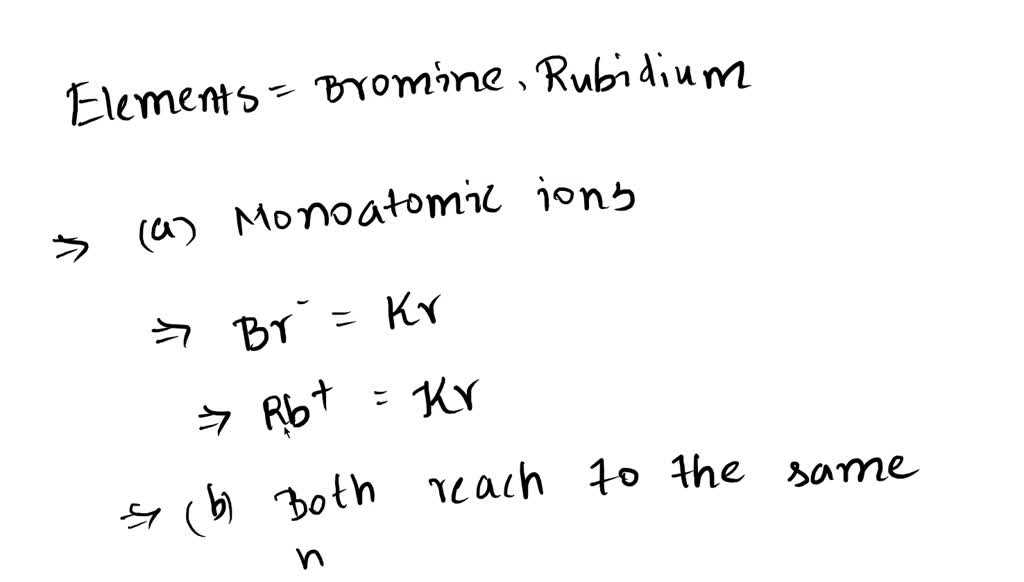 Elements = Bromine, Rubidium
⇒ (a) Monoatomic ions
⇒ Br⁻ = Kr
⇒ Rb⁺ = Kr
⇒ (b) Both reach to the same
n